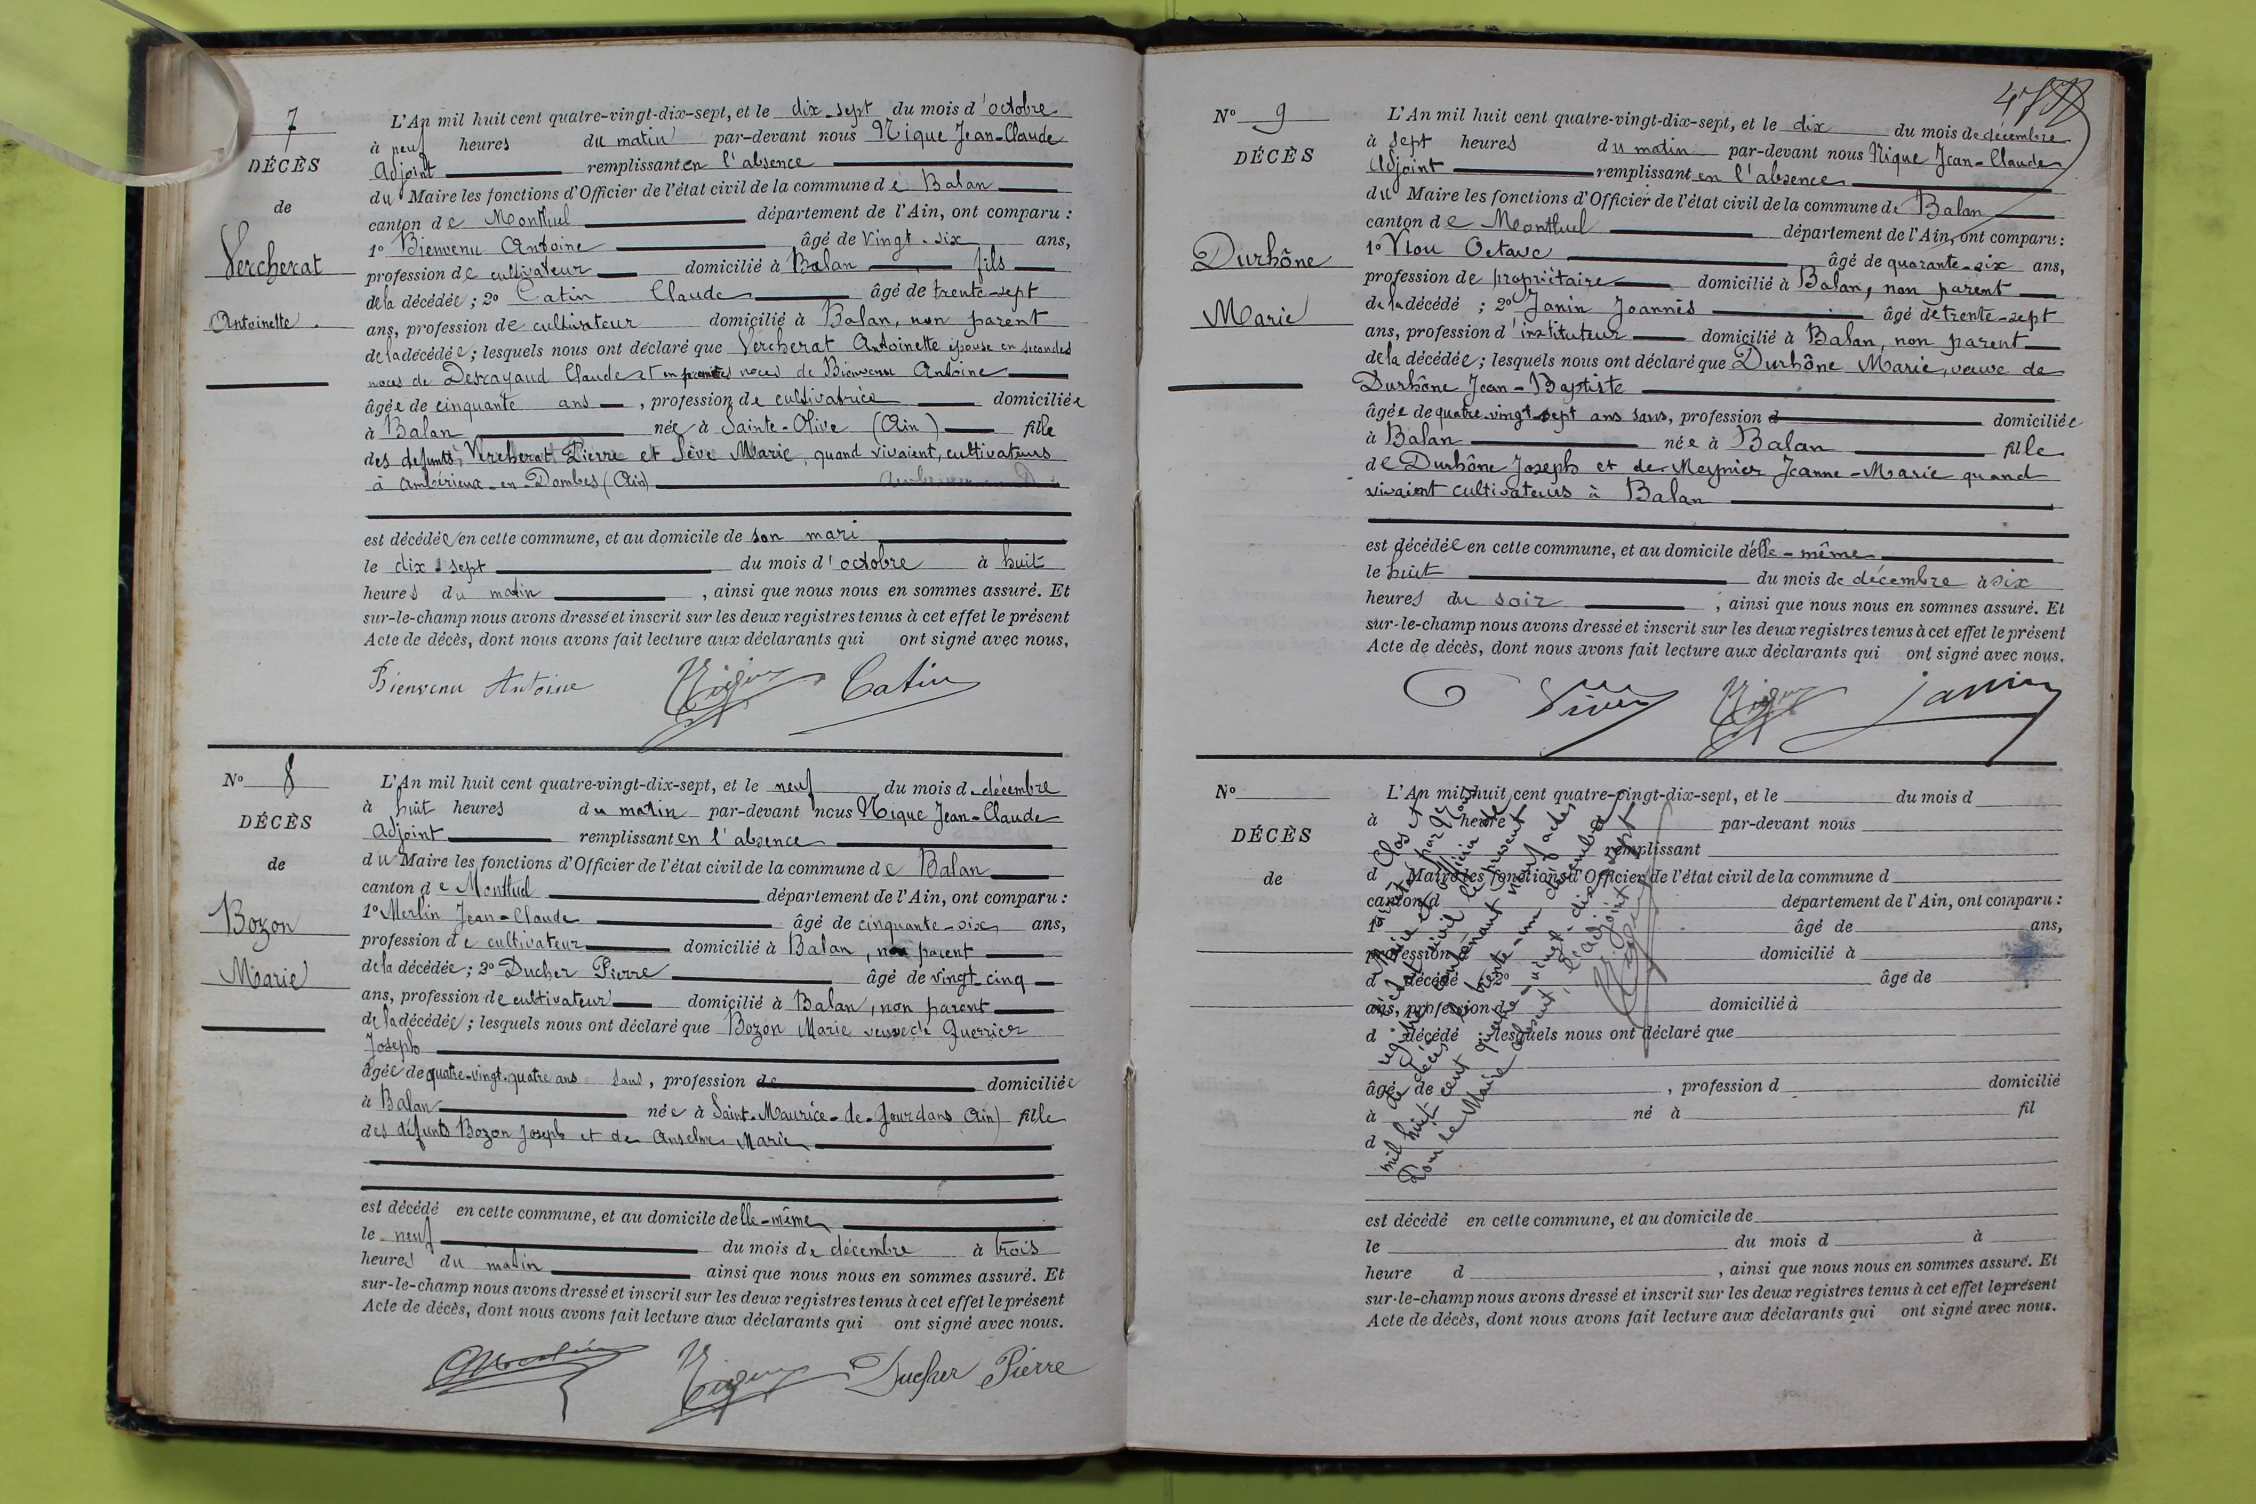 7
DÉCÈS
de
Vercherat
Antoinette.
L'An mil huit cent quatre-vingt-dix-sept, et le dix-sept du mois d'octobre
à neuf heures du matin par-devant nous Nique Jean-Claude
Adjoint remplissant en l'absence
du Maire les fonctions d'Officier de l'état civil de la commune de Balan
canton de Montluel département de l'Ain, ont comparu :
1º Bienvenu Antoine âgé de vingt-six ans,
profession de cultivateur domicilié à Balan fils
de la décédée ; 2º Catin Claude âgé de trente-sept
ans, profession de cultivateur domicilié à Balan, non parent
de la décédée ; lesquels nous ont déclaré que Vercherat Antoinette épouse en secondes
noces de Desrayaud Claude et en premières noces de Bienvenu Antoine
âgée de cinquante ans, profession de cultivatrice domiciliée
à Balan née à Sainte-Olive (Ain) fille
des defunts Vercherat Pierre et Sève Marie, quand vivaient, cultivateurs
à Ambérieux-en-Dombes (Ain)
est décédée en cette commune, et au domicile de son mari
le dix-sept du mois d'octobre à huit
heures du matin, ainsi que nous nous en sommes assuré. Et
sur-le-champ nous avons dressé et inscrit sur les deux registres tenus à cet effet le présent
Acte de décès, dont nous avons fait lecture aux déclarants qui ont signé avec nous.
Bienvenu Antoine Nique Catin
Nº 8
DÉCÈS
de
Bozon
Marie
L'An mil huit cent quatre-vingt-dix-sept, et le neuf du mois de décembre
à huit heures du matin par-devant nous Nique Jean-Claude
Adjoint remplissant en l'absence
du Maire les fonctions d'Officier de l'état civil de la commune de Balan
canton de Montluel département de l'Ain, ont comparu :
1º Merlin Jean-Claude âgé de cinquante-six ans,
profession de cultivateur domicilié à Balan, non parent
de la décédée ; 2º Ducher Pierre âgé de vingt-cinq
ans, profession de cultivateur domicilié à Balan, non parent
de la décédée ; lesquels nous ont déclaré que Bozon Marie veuve de Guerrier
Joseph
âgée de quatre-vingt-quatre ans sans, profession de domiciliée
à Balan née à Saint-Maurice-de-Gourdans (Ain) fille
des défunts Bozon Joseph et de Anselme Marie
est décédé en cette commune, et au domicile de elle-même
le neuf du mois de décembre à trois
heures du matin ainsi que nous nous en sommes assuré. Et
sur-le-champ nous avons dressé et inscrit sur les deux registres tenus à cet effet le présent
Acte de décès, dont nous avons fait lecture aux déclarants qui ont signé avec nous.
Merlin Nique Ducher Pierre
Nº 9
DÉCÈS
Durhône
Marie
L'An mil huit cent quatre-vingt-dix-sept, et le dix du mois de décembre
à sept heures du matin par-devant nous Nique Jean-Claude
Adjoint remplissant en l'absence
du Maire les fonctions d'Officier de l'état civil de la commune de Balan
canton de Montluel département de l'Ain, ont comparu :
1º Octave âgé de quarante-six ans,
profession de propriétaire domicilié à Balan, non parent
de la décédé ; 2º Janin Joannès âgé de trente-sept
ans, profession d'instituteur domicilié à Balan, non parent
de la décédée ; lesquels nous ont déclaré que Durhône Marie, veuve de
Durhône Jean-Baptiste
âgée de quatre-vingt-sept ans sans, profession d domiciliée
à Balan née à Balan fille
de Durhône Joseph et de Meynier Jeanne-Marie quand
vivaient cultivateurs à Balan
est décédée en cette commune, et au domicile d'elle-même
le huit du mois de décembre à six
heures du soir, ainsi que nous nous en sommes assuré. Et
sur-le-champ nous avons dressé et inscrit sur les deux registres tenus à cet effet le présent
Acte de décès, dont nous avons fait lecture aux déclarants qui ont signé avec nous.
Nique Janin
Nº
DÉCÈS
de
L'An mil huit cent quatre-vingt-dix-sept, et le du mois d
à heure par-devant nous
remplissant
d Maire les fonctions d'Officier de l'état civil de la commune d
canton d département de l'Ain, ont comparu :
1º âgé de ans,
profession domicilié à
d décédé 2º âge de
ans, profession d domicilié à
d décédé lesquels nous ont déclaré que
âgé de, profession d domicilié
à né à fil
d
est décédé en cette commune, et au domicile de
le du mois d à
heure d, ainsi que nous nous en sommes assuré. Et
sur-le-champ nous avons dressé et inscrit sur les deux registres tenus à cet effet le présent
Acte de décès, dont nous avons fait lecture aux déclarants qui ont signé avec nous.
Clos et arrêté par Nous
Maire et officier de
l'état civil le présent
registre contenant neuf actes
de décès le trente-un décembre
mil huit cent quatre-vingt-dix-sept
Pour le Maire absent, l'adjoint
Nique